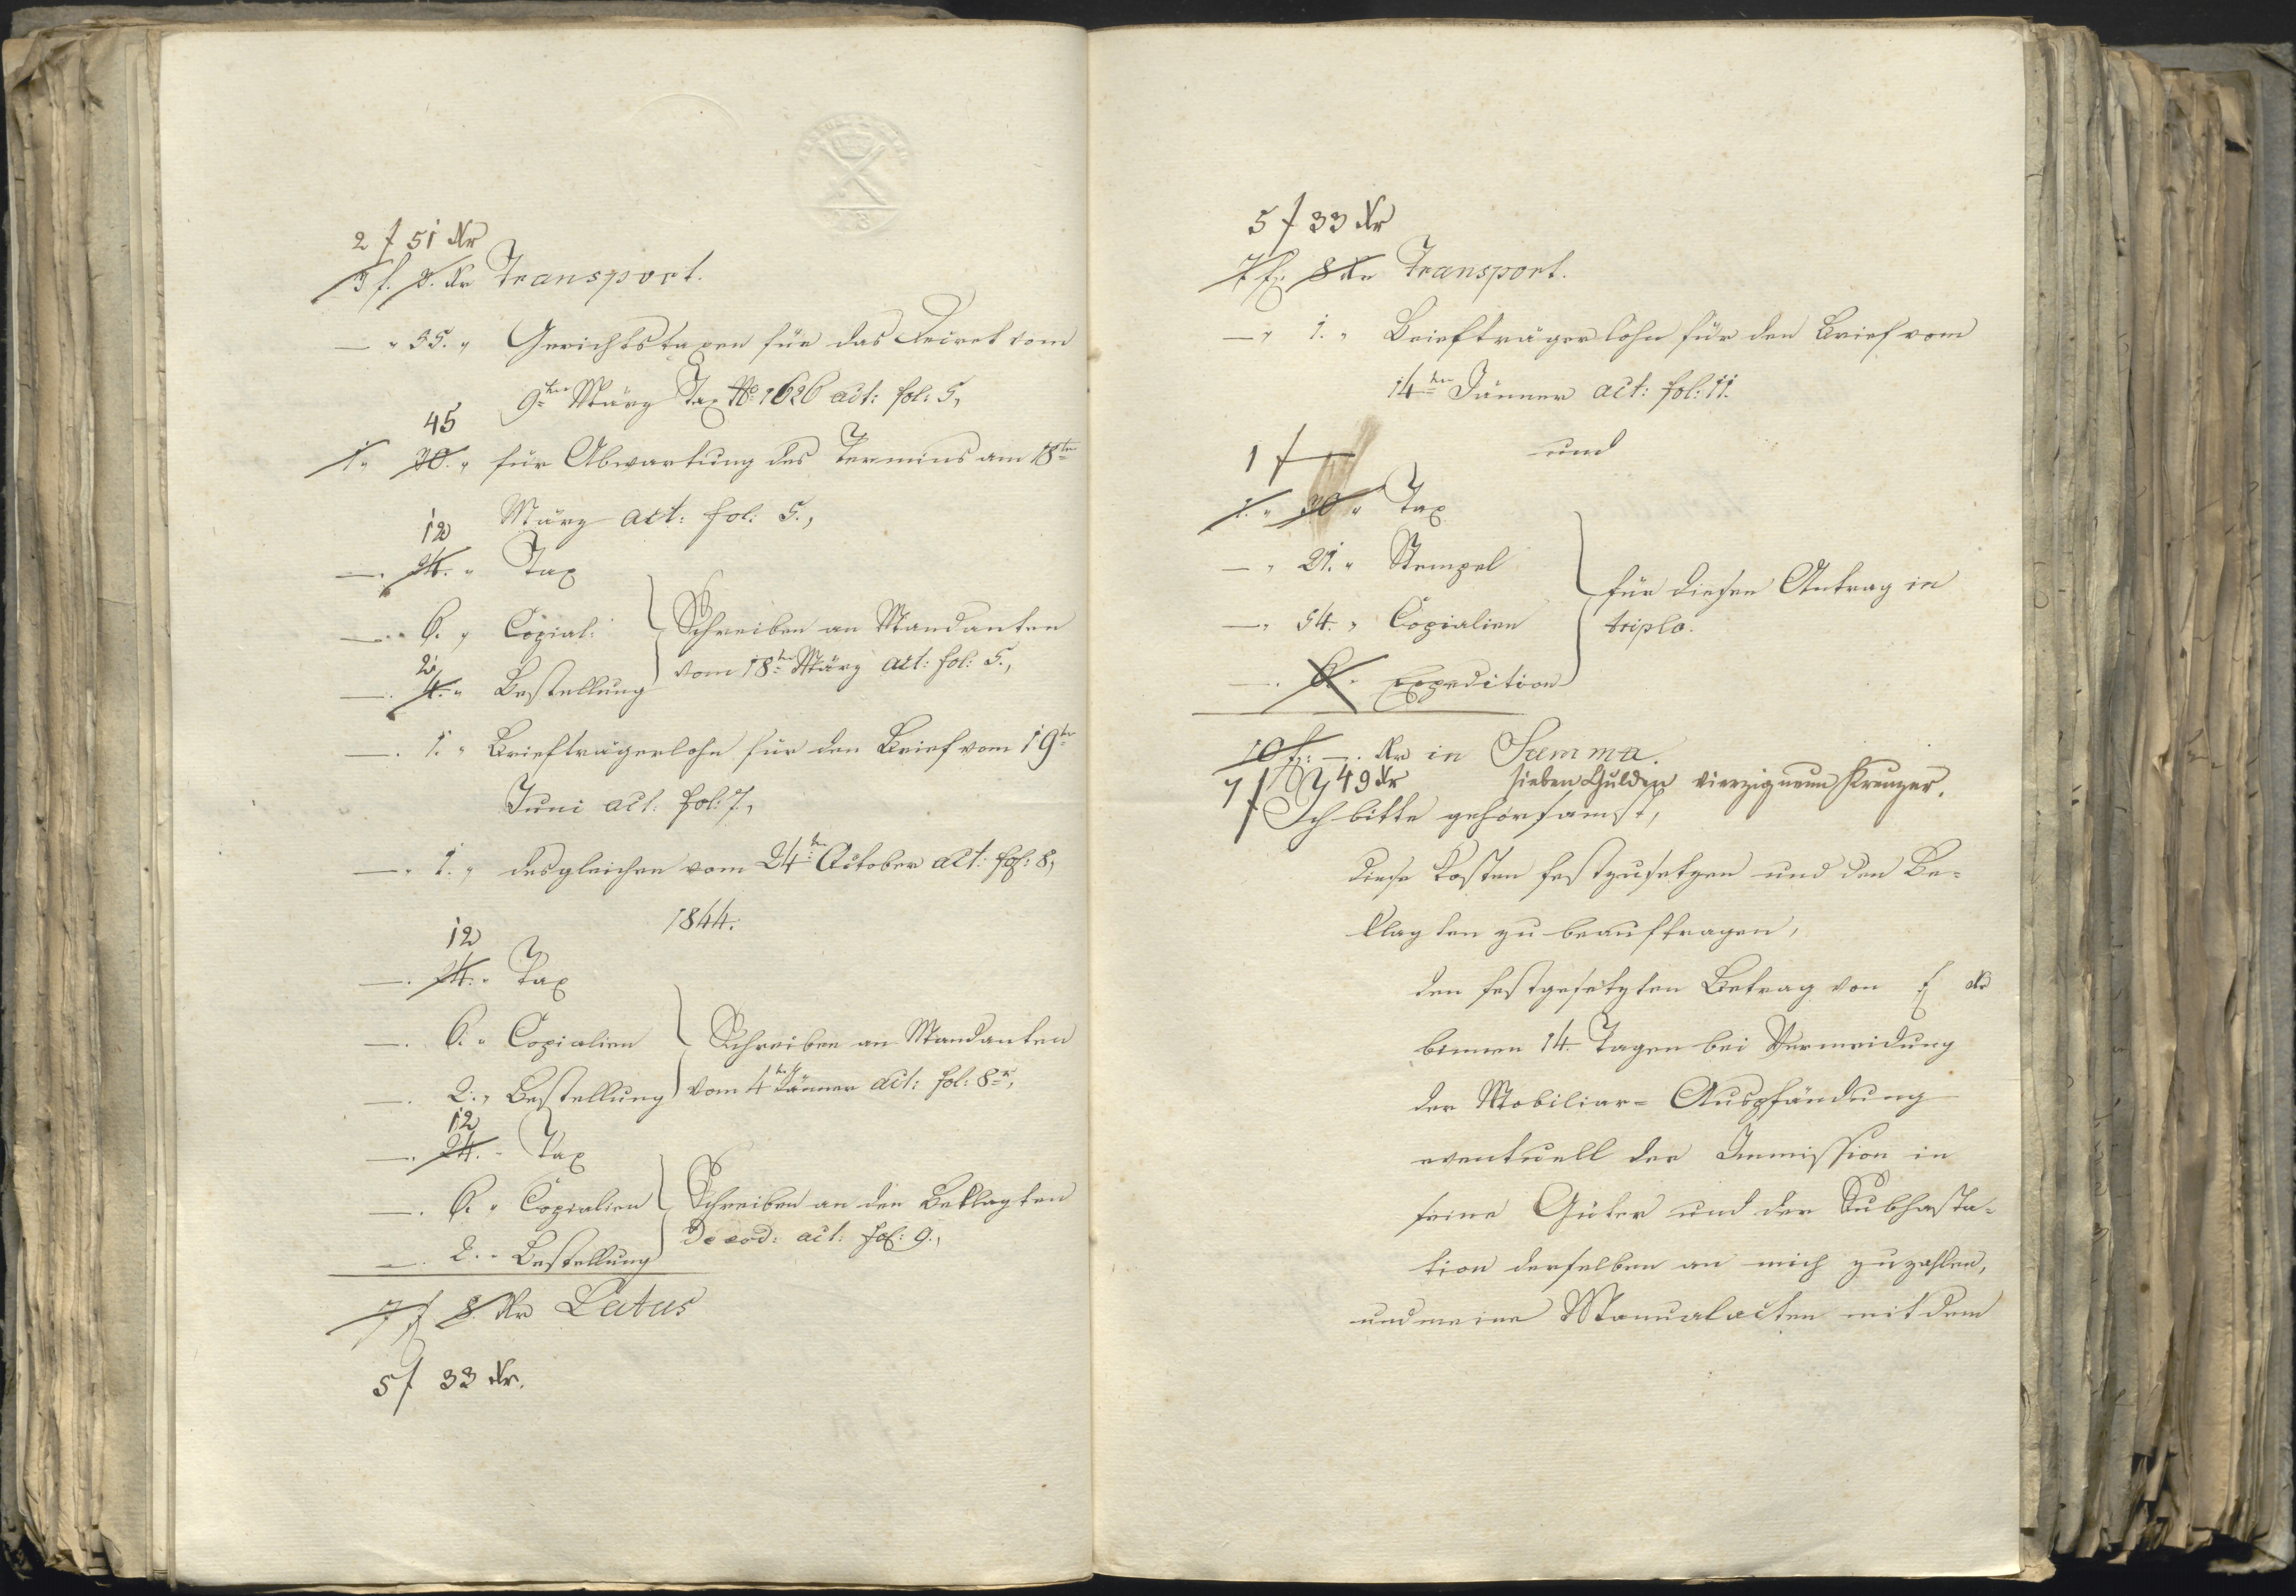 2 f 51 Kr
3 f. 8. Kr Transport.
— " 35. " Gerichtstaxen für das Decret vom
9ten März Tax No 1626 act: fol: 5,
45
1. " 30. " für Abwartung des Termins am 18ten
März act: fol: 5.,
12
—. 24. " Tax
—. 6. " Copial: Schreiben an Mandanten
2
—. 4. " Bestellung vom 18ten März act: fol: 5.,
—. 1. " Briefträgerlohn für den Brief vom 19ten
Juni act: fol: 7,
—. 1. " desgleichen vom 24ten October act: fol: 8,
1844.
12
—. 24. " Tax
—. 6. " Copialien Schreiben an Mandanten
—. 2. " Bestellung vom 4ten Jänner act: fol: 8R,
12
—. 24. " Tax
—. 6. " Copialien Schreiben an den Beklagten
—. 2. " Bestellung de eod: act: fol: 9.,
7 f 8 Kr Latus
5 f 33 Kr.
5 f 33 Kr
7 f. 8 Kr Transport.
— " 1. " Briefträgerlohn für den Brief vom
14ten Jänner act: fol: 11.
und
1 f —
1. " 30 " Tax
— " 21. " Stempel
für diesen Antrag in
— " 54. " Copialien triplo.
—. 6. " Expedition
10 f: —. Kr in Summa.
7 f 49 Kr sieben Gulden vierzig neun Kreuzer.
Ich bitte gehorsamst,
diese Kosten festzusetzen und den Be-
klagten zu beauftragen,
den festgesetzten Betrag von f Kr
binnen 14 Tagen bei Vermeidung
der Mobiliar-Auspfändung
eventuell der Immission in
seine Güter und der Subhasta-
tion derselben an mich zu zahlen,
und meine Manualacten mit dem